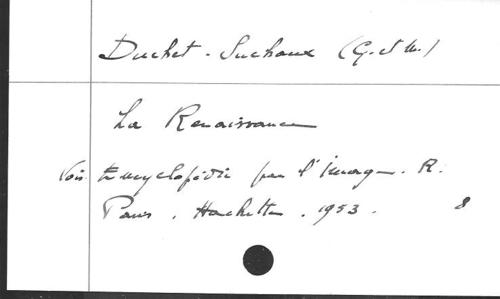 Duchet-Suchaux (G. et M.)
La Renaissance
Voir Encyclopédie par l'image. R.
Paris. Hachette. 1953. 8